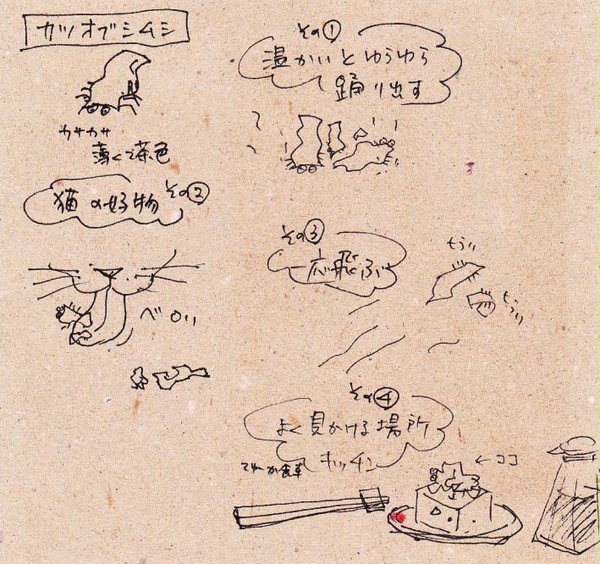 カツオブシムシ
カサカサ
薄くて茶色
その①
温かいとゆらゆら
踊り出す
その②
猫の好物
ベロリ
その③
一応飛ぶ
よく見かける場所
その④
キッチン
←ココ